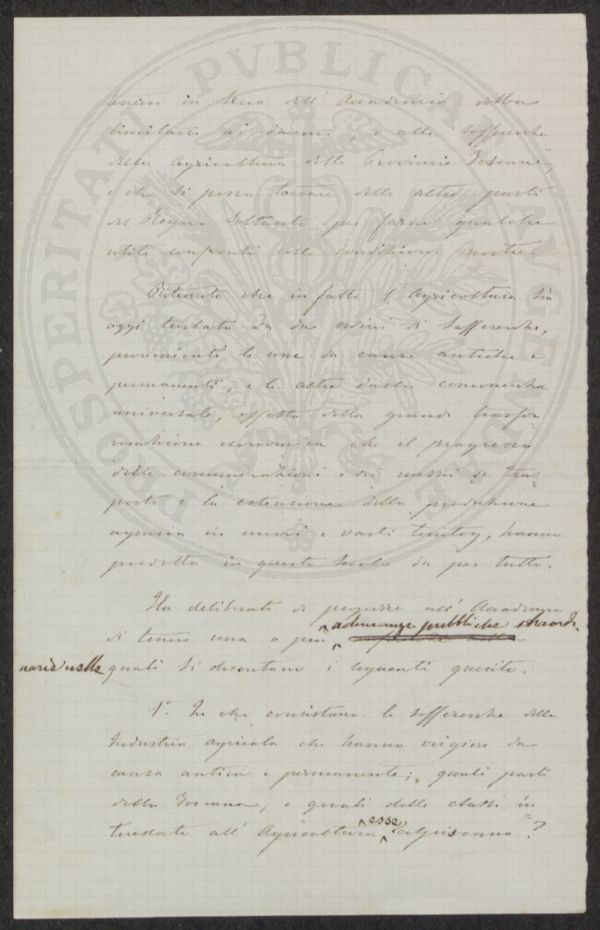 tenersi in seno dell' Accademia debba
limitarsi ai danni, e alle sofferenze
della agricoltura delle Provincie Toscane,
e che si possa toccare delle altre parti
del Regno soltanto per farne qualche
utile confronto colle condizioni nostre.
Ritenuto che in fatto l'Agricoltura sia
oggi turbata da due ordini di sofferenze,
provenienti le une da cause antiche e
permanenti, e le altre dalla concorrenza
universale, effetto della grande trasfor
mazione economica che il progresso
delle comunicazioni e dei mezzi di tra
porto e la estensione della produzione
agraria in nuovi e vasti territorj, hanno
prodotto in questo secolo da per tutto.
Ha deliberato di proporre all' Accademia
di tenere una o più adunanze pubbliche straordi
narie nelle quali si discutano i seguenti quesiti.
1.° In che consistano le sofferenze della
Industria agricola che hanno origine da
causa antica e permanente; quali parti
della Toscana, e quali delle classi in
teressate all' Agricoltura esse colpiscano?
PROSPERITATI PVBLICAE AVGENDAE